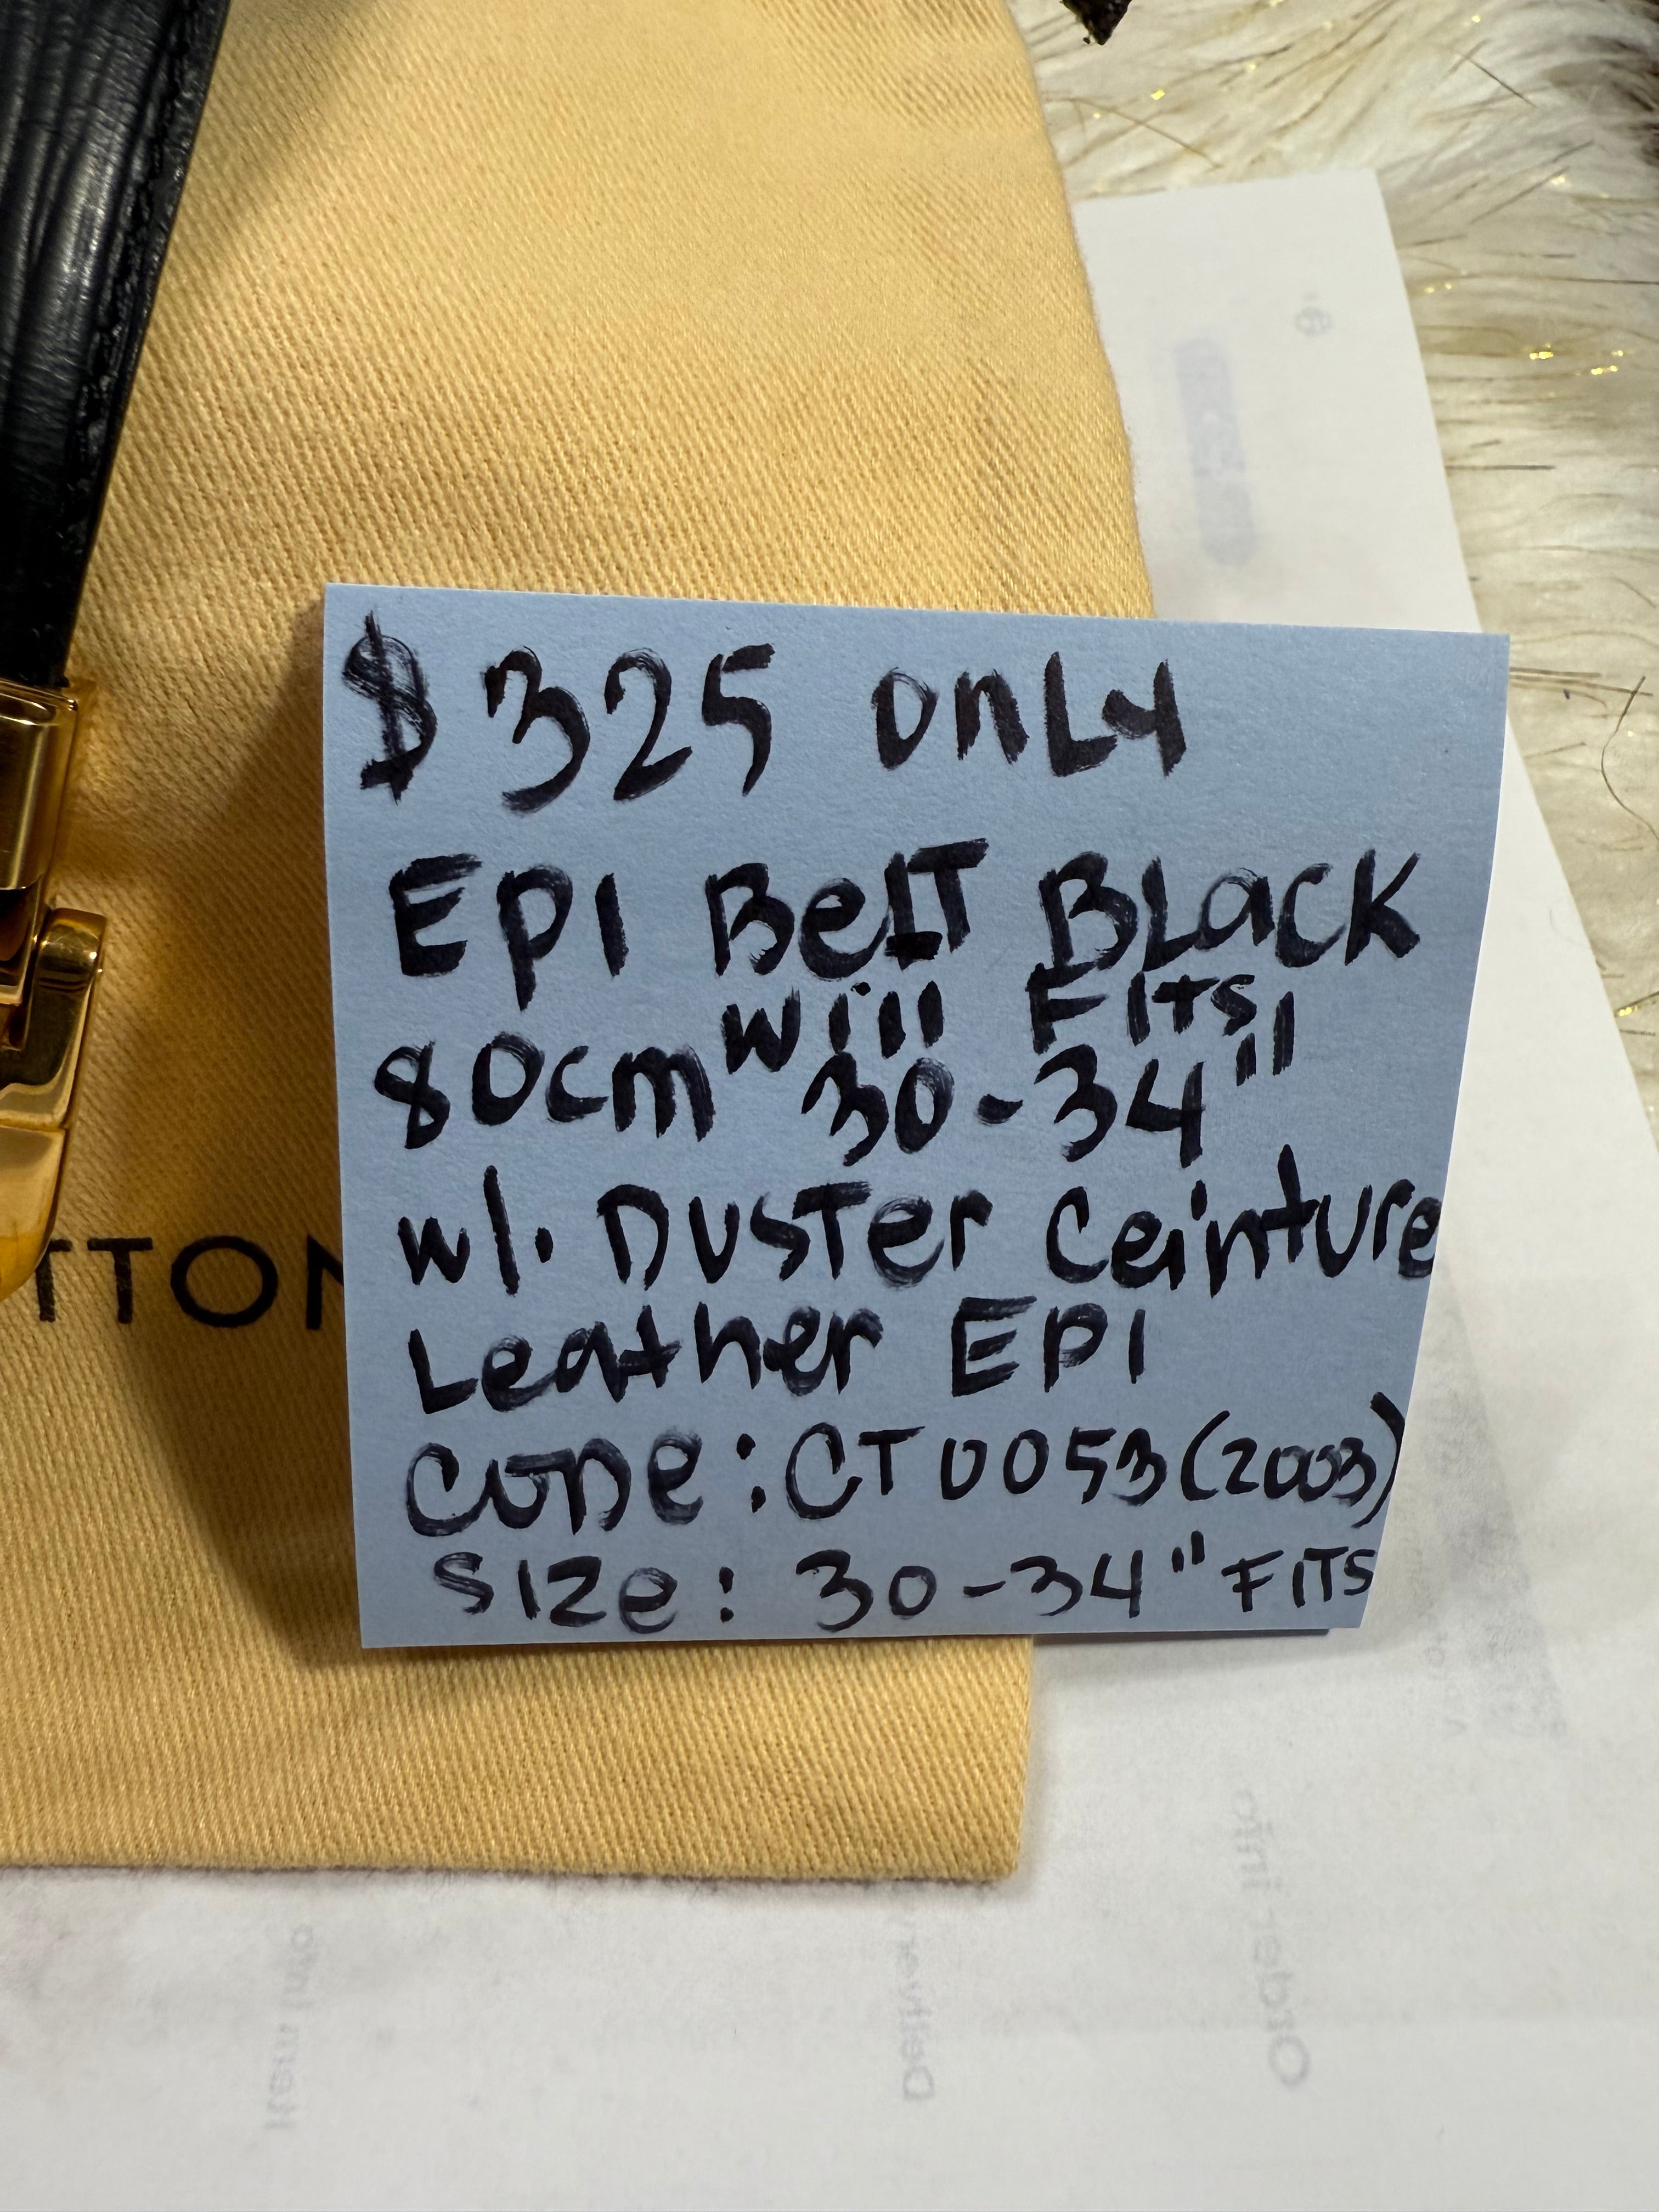 $325 only
EPI Belt Black
will Fits
80cm 30-34"
w/. Duster Ceinture
Leather EPI
Code: CT0053 (2003)
Size: 30-34" Fits
TTON
Item info
Order info